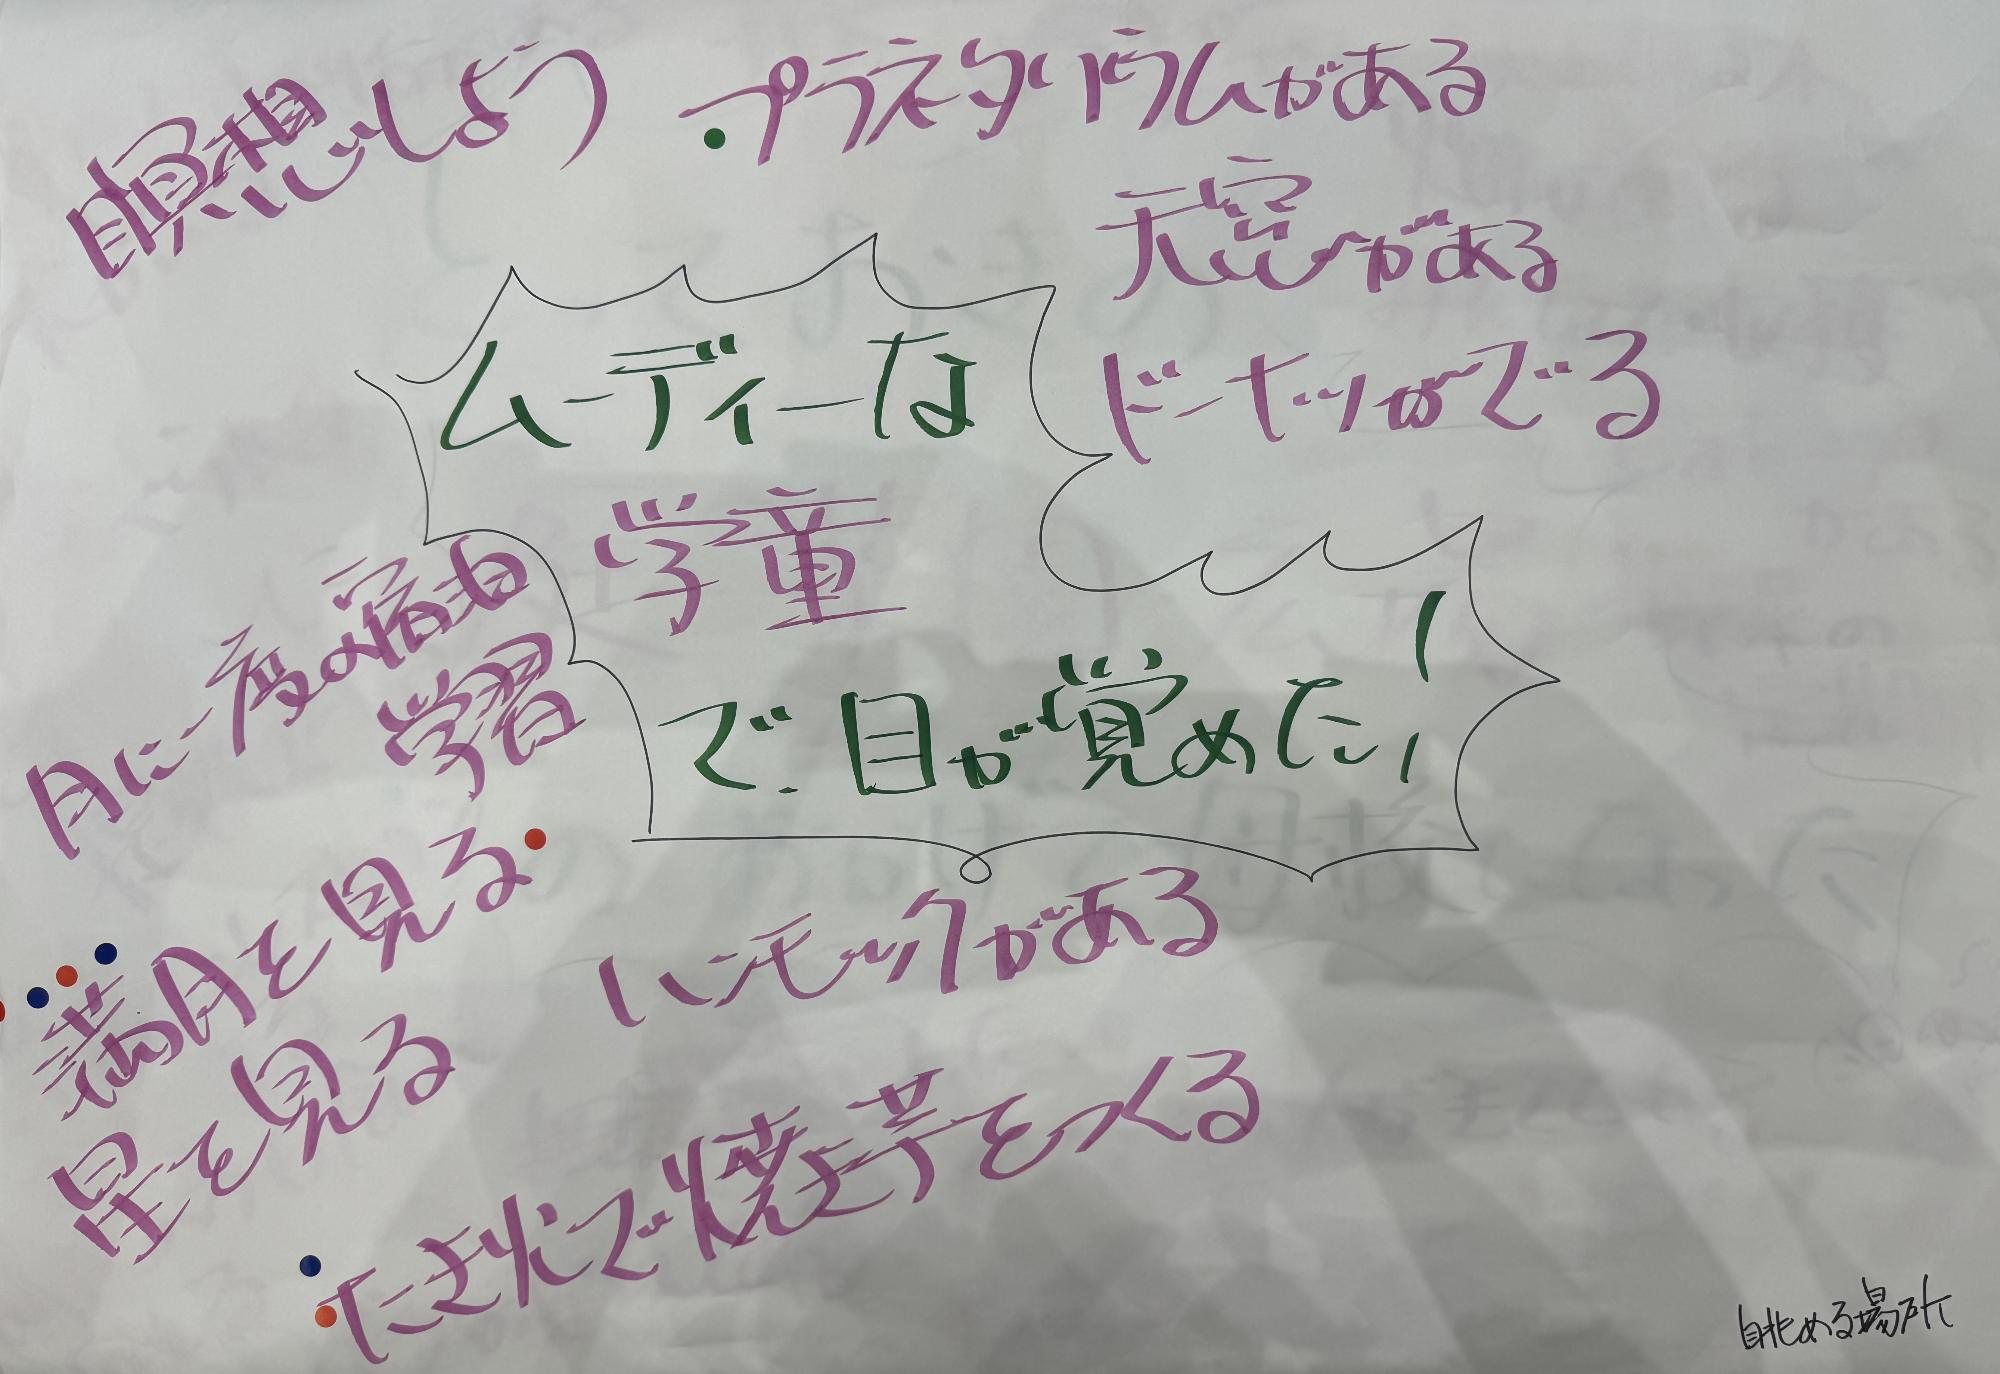 瞑想しよう
プラネタリウムがある
天窓がある
ドーナッツがでる
ムーディーな
学童
で目が覚めた!
月に一度の宿泊
学習
満月を見る
星を見る
ハンモックがある
たき火で焼き芋をつくる
眺める場所